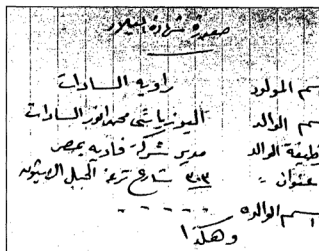 صورة شهادة الميلاد
سم المولود راوية السادات
سم الوالد اليوزباشى محمد انور السادات
ظيفة الوالد مدير شركة بمصر
عنوان = ٣٠٣ شارع ترعة الجبل
اسم الوالده - - - - -
وهكذا